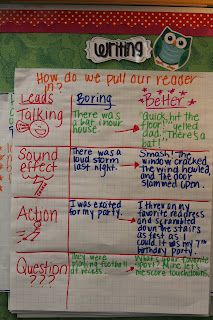 Writing
How do we pull our reader
in?
Leads
Boring
Better
Talking
There was
a bat in our
house
"Quick, hit the
floor!" yelled
dad. "There's
a bat!"
Sound
effect
There was a
loud storm
last night.
Smash! The
window cracked
The wind howled,
and the door
slammed open.
Action
I was excited
for my party.
I threw on my
favorite red dress
and scrambled
down the stairs
as fast as I
could. It was my 7th
birthday party.
Question
???
They were
playing football
at recess.
What's your favorite
sport? Mine
touchdowns.